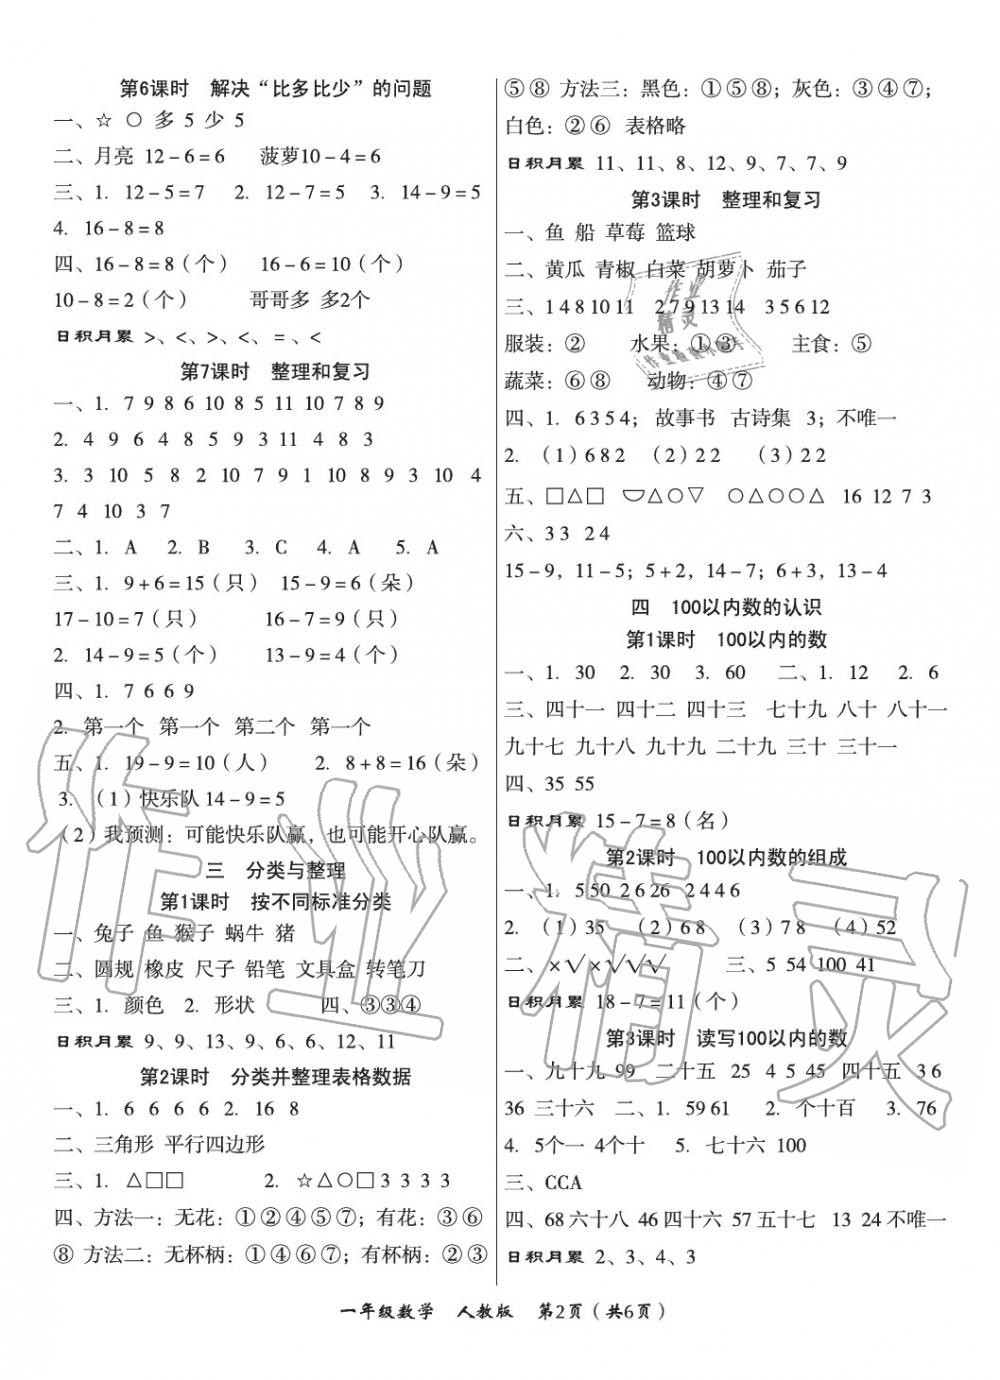 第6课时 解决“比多比少”的问题
一、☆ ○ 多 5 少 5
二、月亮 12－6＝6 菠萝10－4＝6
三、1. 12－5＝7 2. 12－7＝5 3. 14－9＝5
4. 16－8＝8
四、16－8＝8（个） 16－6＝10（个）
10－8＝2（个） 哥哥多 多2个
日积月累 >、<、>、<、＝、<
第7课时 整理和复习
一、1. 7 9 8 6 10 8 5 11 10 7 8 9
2. 4 9 6 4 8 5 9 3 11 4 8 3
3. 3 10 5 8 2 10 7 9 1 10 8 9 3 10 4
7 4 10 3 7
二、1. A 2. B 3. C 4. A 5. A
三、1. 9＋6＝15（只） 15－9＝6（朵）
17－10＝7（只） 16－7＝9（只）
2. 14－9＝5（个） 13－9＝4（个）
四、1. 7 6 6 9
2. 第一个 第一个 第二个 第一个
五、1. 19－9＝10（人） 2. 8＋8＝16（朵）
3. （1）快乐队 14－9＝5
（2）我预测：可能快乐队赢，也可能开心队赢。
三 分类与整理
第1课时 按不同标准分类
一、兔子 鱼 猴子 蜗牛 猪
二、圆规 橡皮 尺子 铅笔 文具盒 转笔刀
三、1. 颜色 2. 形状 四、③③④
日积月累 9、9、13、9、6、6、12、11
第2课时 分类并整理表格数据
一、1. 6 6 6 6 2. 16 8
二、三角形 平行四边形
三、1. △□□ 2. ☆△○□ 3 3 3 3
四、方法一：无花：①②④⑤⑦；有花：③⑥
⑧ 方法二：无杯柄：①④⑥⑦；有杯柄：②③
⑤⑧ 方法三：黑色：①⑤⑧；灰色：③④⑦；
白色：②⑥ 表格略
日积月累 11、11、8、12、9、7、7、9
第3课时 整理和复习
一、鱼 船 草莓 篮球
二、黄瓜 青椒 白菜 胡萝卜 茄子
三、1 4 8 10 11 2 7 9 13 14 3 5 6 12
服装：② 水果：①③ 主食：⑤
蔬菜：⑥⑧ 动物：④⑦
四、1. 6 3 5 4；故事书 古诗集 3；不唯一
2. （1）6 8 2 （2）2 2 （3）2 2
五、□△□ ▽△○▽ ○△○○△ 16 12 7 3
六、3 3 2 4
15－9，11－5；5＋2，14－7；6＋3，13－4
四 100以内数的认识
第1课时 100以内的数
一、1. 30 2. 30 3. 60 二、1. 12 2. 6
三、四十一 四十二 四十三 七十九 八十 八十一
九十七 九十八 九十九 二十九 三十 三十一
四、35 55
日积月累 15－7＝8（名）
第2课时 100以内数的组成
一、1. 5 50 2 6 26 2 4 4 6
2. （1）35 （2）6 8 （3）7 8 （4）52
二、×√×√√√ 三、5 54 100 41
日积月累 18－7＝11（个）
第3课时 读写100以内的数
一、九十九 99 二十五 25 4 5 45 四十五 3 6
36 三十六 二、1. 59 61 2. 个 十 百 3. 76
4. 5个一 4个十 5. 七十六 100
三、CCA
四、68 六十八 46 四十六 57 五十七 13 24 不唯一
日积月累 2、3、4、3
一年级数学 人教版 第2页（共6页）
作业精灵